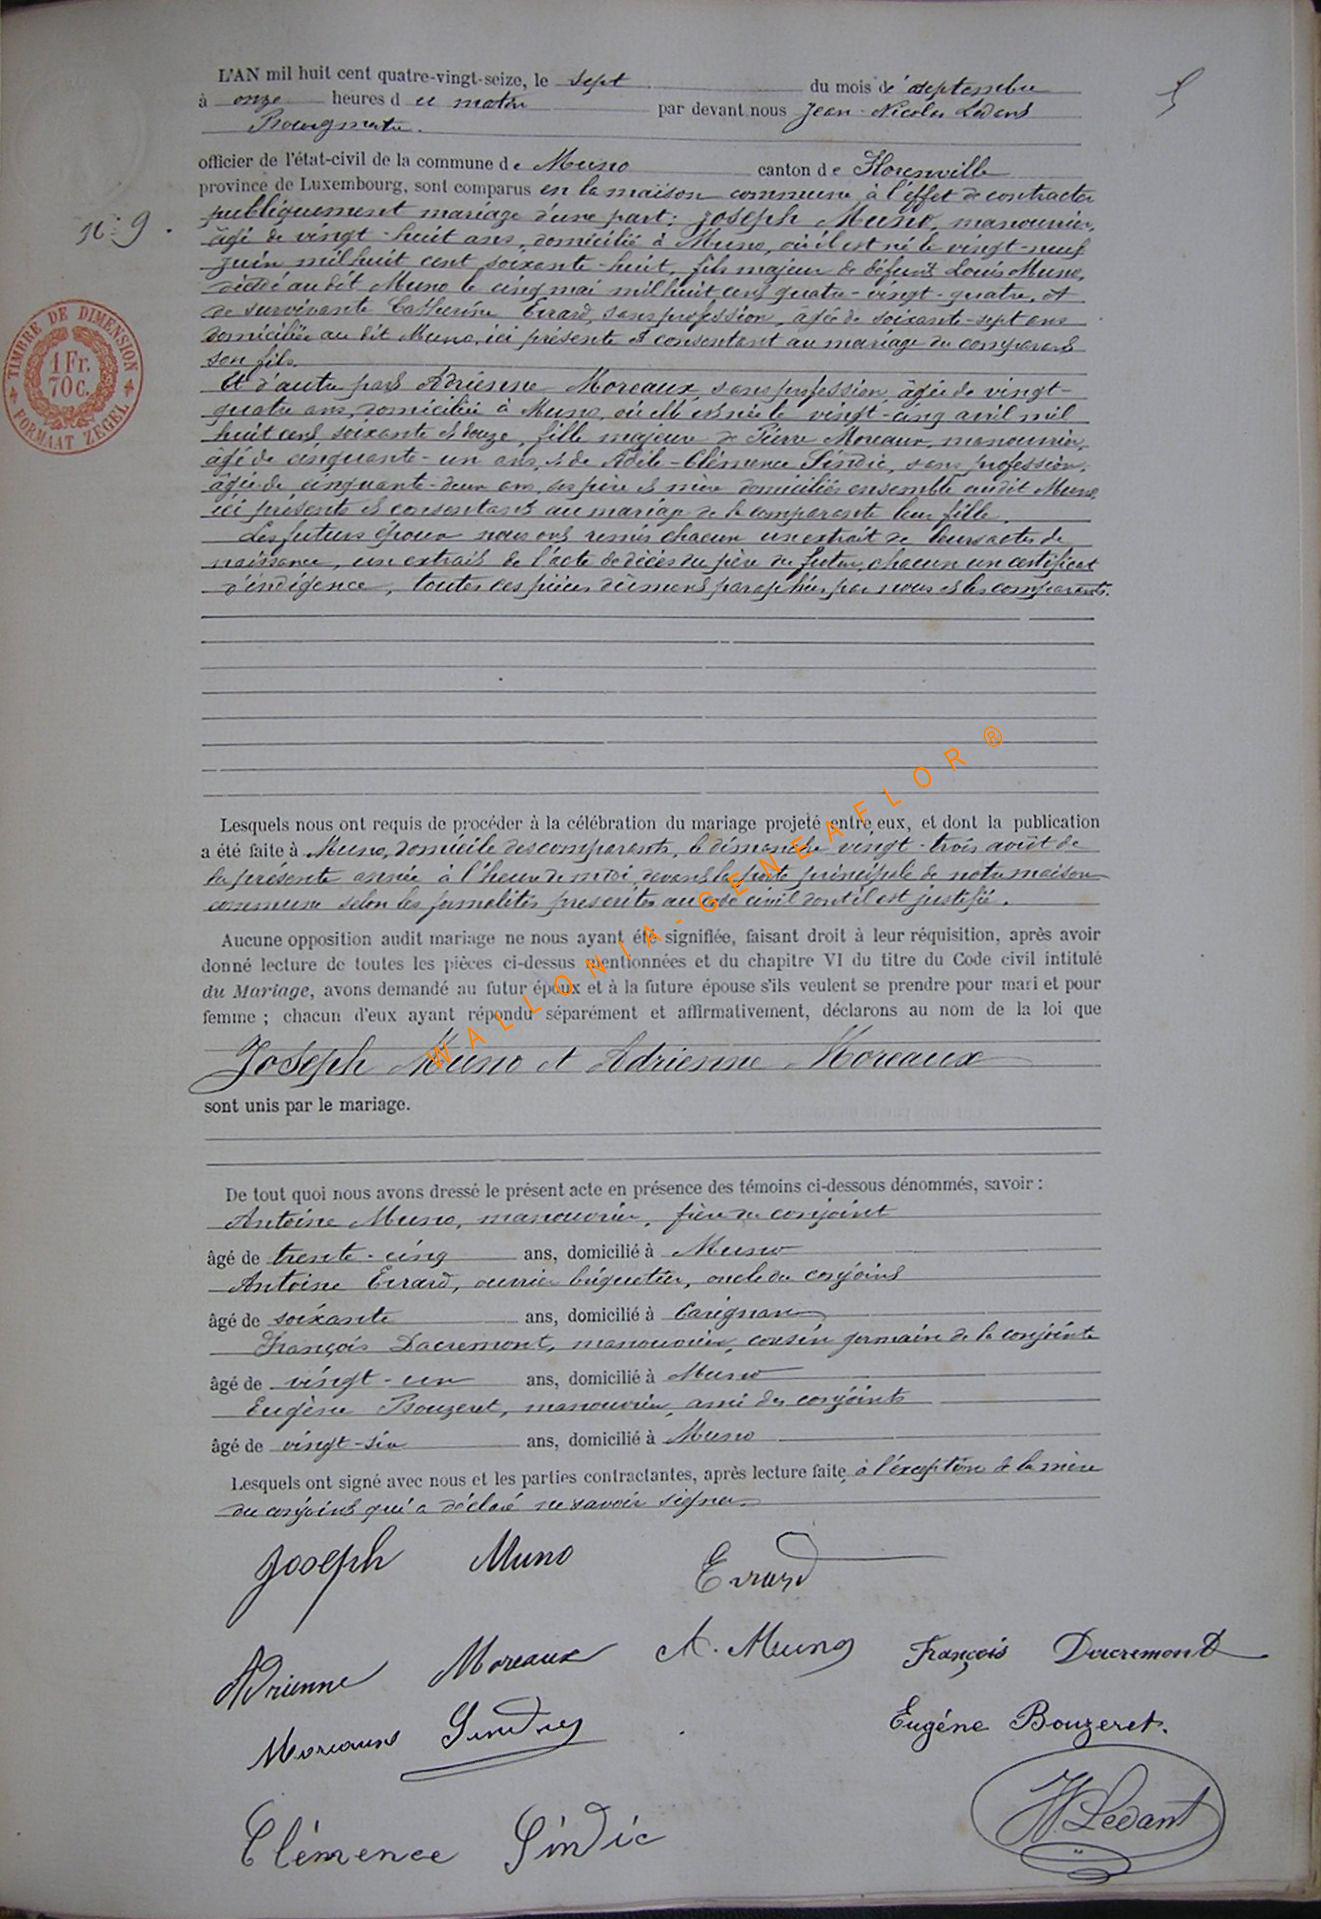 L'AN mil huit cent quatre-vingt-seize, le sept du mois de septembre
à onze heures d u matin par devant nous Jean-Nicolas Ledant
Bourgmestre.
officier de l'état-civil de la commune de Muno canton de Florenville
province de Luxembourg, sont comparus en la maison commune à l'effet de contracter
N° 9.
publiquement mariage d'une part: Joseph Muno, manouvrier,
âgé de vingt-huit ans, domicilié à Muno, où il est né le vingt-neuf
juin mil huit cent soixante-huit, fils majeur de défunt Louis Muno,
décédé au dit Muno le cinq mai mil huit cent quatre-vingt-quatre, et
de survivante Catherine Evrard, sans profession, âgée de soixante-sept ans
domiciliée au dit Muno, ici présente et consentant au mariage du comparant
son fils.
Et d'autre part Adrienne Moreaux, sans profession, âgée de vingt-
quatre ans, domiciliée à Muno, où elle est née le vingt-cinq avril mil
huit cent soixante et douze, fille majeure de Pierre Moreaux, manouvrier,
âgé de cinquante-un ans, et de Adèle-Clémence Sindic, sans profession,
âgée de cinquante-deux ans, ses père et mère domiciliés ensemble audit Muno,
ici présents et consentant au mariage de la comparante leur fille.
Les futurs époux nous ont remis chacun un extrait de leurs actes de
naissance, un extrait de l'acte de décès du père du futur, chacun un certificat
d'indigence, toutes ces pièces dûment paraphées par nous et les comparants.
TIMBRE DE DIMENSION
1 Fr.
70 c.
FORMAAT ZEGEL
Lesquels nous ont requis de procéder à la célébration du mariage projeté entre eux, et dont la publication
a été faite à Muno, domicile des comparants, le dimanche vingt-trois août de
la présente année à l'heure de midi, devant la porte principale de notre maison
commune selon les formalités prescrites au code civil dont il est justifié.
Aucune opposition audit mariage ne nous ayant été signifiée, faisant droit à leur réquisition, après avoir
donné lecture de toutes les pièces ci-dessus mentionnées et du chapitre VI du titre du Code civil intitulé
du Mariage, avons demandé au futur époux et à la future épouse s'ils veulent se prendre pour mari et pour
femme ; chacun d'eux ayant répondu séparément et affirmativement, déclarons au nom de la loi que
Joseph Muno et Adrienne Moreaux
sont unis par le mariage.
WALLONIA-GENEAFLOR®
De tout quoi nous avons dressé le présent acte en présence des témoins ci-dessous dénommés, savoir :
Antoine Muno, manouvrier, frère du conjoint
âgé de trente-cinq ans, domicilié à Muno
Antoine Evrard, ouvrier briquetier, oncle du conjoint
âgé de soixante ans, domicilié à Carignan
François Dacremont, manouvrier, cousin germain de la conjointe
âgé de vingt-un ans, domicilié à Muno
Eugène Bouzeret, manouvrier, ami des conjoints
âgé de vingt-six ans, domicilié à Muno
Lesquels ont signé avec nous et les parties contractantes, après lecture faite, à l'exception de la mère
du conjoint qui a déclaré ne savoir signer.
Joseph Muno Evrard
Adrienne Moreaux A. Muno François Dacremont
Moreaux Sindic Eugéne Bouzeret.
Clémence Sindic JN Ledant